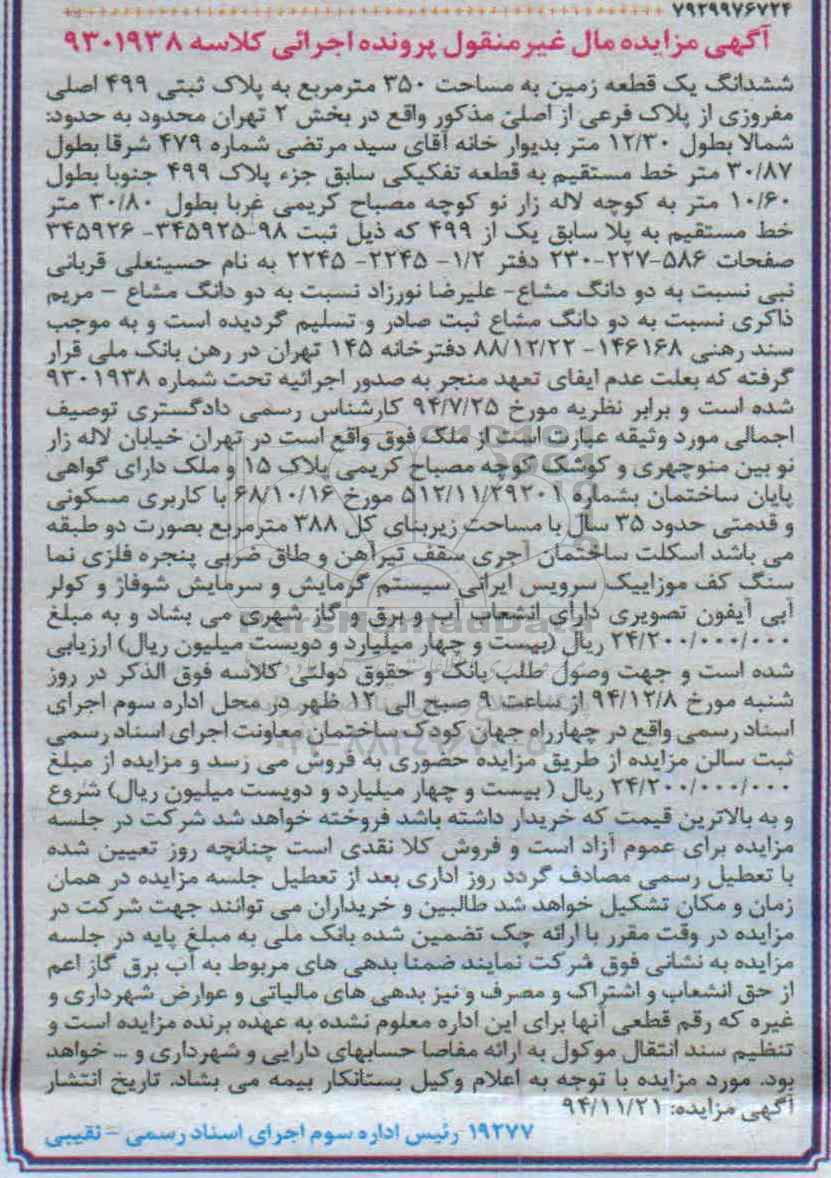 ۷۹۲۹۹۷۶۷۲۴
آگهی مزایده مال غیرمنقول پرونده اجرائی کلاسه ۹۳۰۱۹۳۸
ششدانگ یک قطعه زمین به مساحت ۳۵۰ مترمربع به پلاک ثبتی ۴۹۹ اصلی
مفروزی از پلاک فرعی از اصلی مذکور واقع در بخش ۲ تهران محدود به حدود:
شمالا بطول ۱۲/۳۰ متر بدیوار خانه آقای سید مرتضی شماره ۴۷۹ شرقا بطول
۳۰/۸۷ متر خط مستقیم به قطعه تفکیکی سابق جزء پلاک ۴۹۹ جنوبا بطول
۱۰/۶۰ متر به کوچه لاله زار نو کوچه مصباح کریمی غربا بطول ۳۰/۸۰ متر
خط مستقیم به پلا سابق یک از ۴۹۹ که ذیل ثبت ۹۸-۳۴۵۹۲۵- ۳۴۵۹۲۶
صفحات ۵۸۶-۲۲۷-۲۳۰ دفتر ۱/۲- ۲۲۴۵- ۲۲۴۵ به نام حسینعلی قربانی
نبی نسبت به دو دانگ مشاع- علیرضا نورزاد نسبت به دو دانگ مشاع - مریم
ذاکری نسبت به دو دانگ مشاع ثبت صادر و تسلیم گردیده است و به موجب
سند رهنی ۱۴۶۱۶۸- ۸۸/۱۲/۲۲ دفترخانه ۱۴۵ تهران در رهن بانک ملی قرار
گرفته که بعلت عدم ایفای تعهد منجر به صدور اجرائیه تحت شماره ۹۳۰۱۹۳۸
شده است و برابر نظریه مورخ ۹۴/۷/۲۵ کارشناس رسمی دادگستری توصیف
اجمالی مورد وثیقه عبارت است از ملک فوق واقع است در تهران خیابان لاله زار
نو بین منوچهری و کوشک کوچه مصباح کریمی پلاک ۱۵ و ملک دارای گواهی
پایان ساختمان بشماره ۵۱۲/۱۱/۲۹۲۰۱ مورخ ۶۸/۱۰/۱۶ با کاربری مسکونی
و قدمتی حدود ۳۵ سال با مساحت زیربنای کل ۳۸۸ مترمربع بصورت دو طبقه
می باشد اسکلت ساختمان آجری سقف تیرآهن و طاق ضربی پنجره فلزی نما
سنگ کف موزاییک سرویس ایرانی سیستم گرمایش و سرمایش شوفاژ و کولر
آبی آیفون تصویری دارای انشعاب آب و برق و گاز شهری می بشاد و به مبلغ
۲۴/۲۰۰/۰۰۰/۰۰۰ ریال (بیست و چهار میلیارد و دویست میلیون ریال) ارزیابی
شده است و جهت وصول طلب بانک و حقوق دولتی کلاسه فوق الذکر در روز
شنبه مورخ ۹۴/۱۲/۸ از ساعت ۹ صبح الی ۱۲ ظهر در محل اداره سوم اجرای
اسناد رسمی واقع در چهارراه جهان کودک ساختمان معاونت اجرای اسناد رسمی
ثبت سالن مزایده از طریق مزایده حضوری به فروش می رسد و مزایده از مبلغ
۲۴/۲۰۰/۰۰۰/۰۰۰ ریال ( بیست و چهار میلیارد و دویست میلیون ریال) شروع
و به بالاترین قیمت که خریدار داشته باشد فروخته خواهد شد شرکت در جلسه
مزایده برای عموم آزاد است و فروش کلا نقدی است چنانچه روز تعیین شده
با تعطیل رسمی مصادف گردد روز اداری بعد از تعطیل جلسه مزایده در همان
زمان و مکان تشکیل خواهد شد طالبین و خریداران می توانند جهت شرکت در
مزایده در وقت مقرر با ارائه چک تضمین شده بانک ملی به مبلغ پایه در جلسه
مزایده به نشانی فوق شرکت نمایند ضمنا بدهی های مربوط به آب برق گاز اعم
از حق انشعاب و اشتراک و مصرف و نیز بدهی های مالیاتی و عوارض شهرداری و
غیره که رقم قطعی آنها برای این اداره معلوم نشده به عهده برنده مزایده است و
تنظیم سند انتقال موکول به ارائه مفاصا حسابهای دارایی و شهرداری و ... خواهد
بود. مورد مزایده با توجه به اعلام وکیل بستانکار بیمه می بشاد. تاریخ انتشار
آگهی مزایده: ۹۴/۱۱/۲۱
۱۹۲۷۷ رئیس اداره سوم اجرای اسناد رسمی - نقیبی